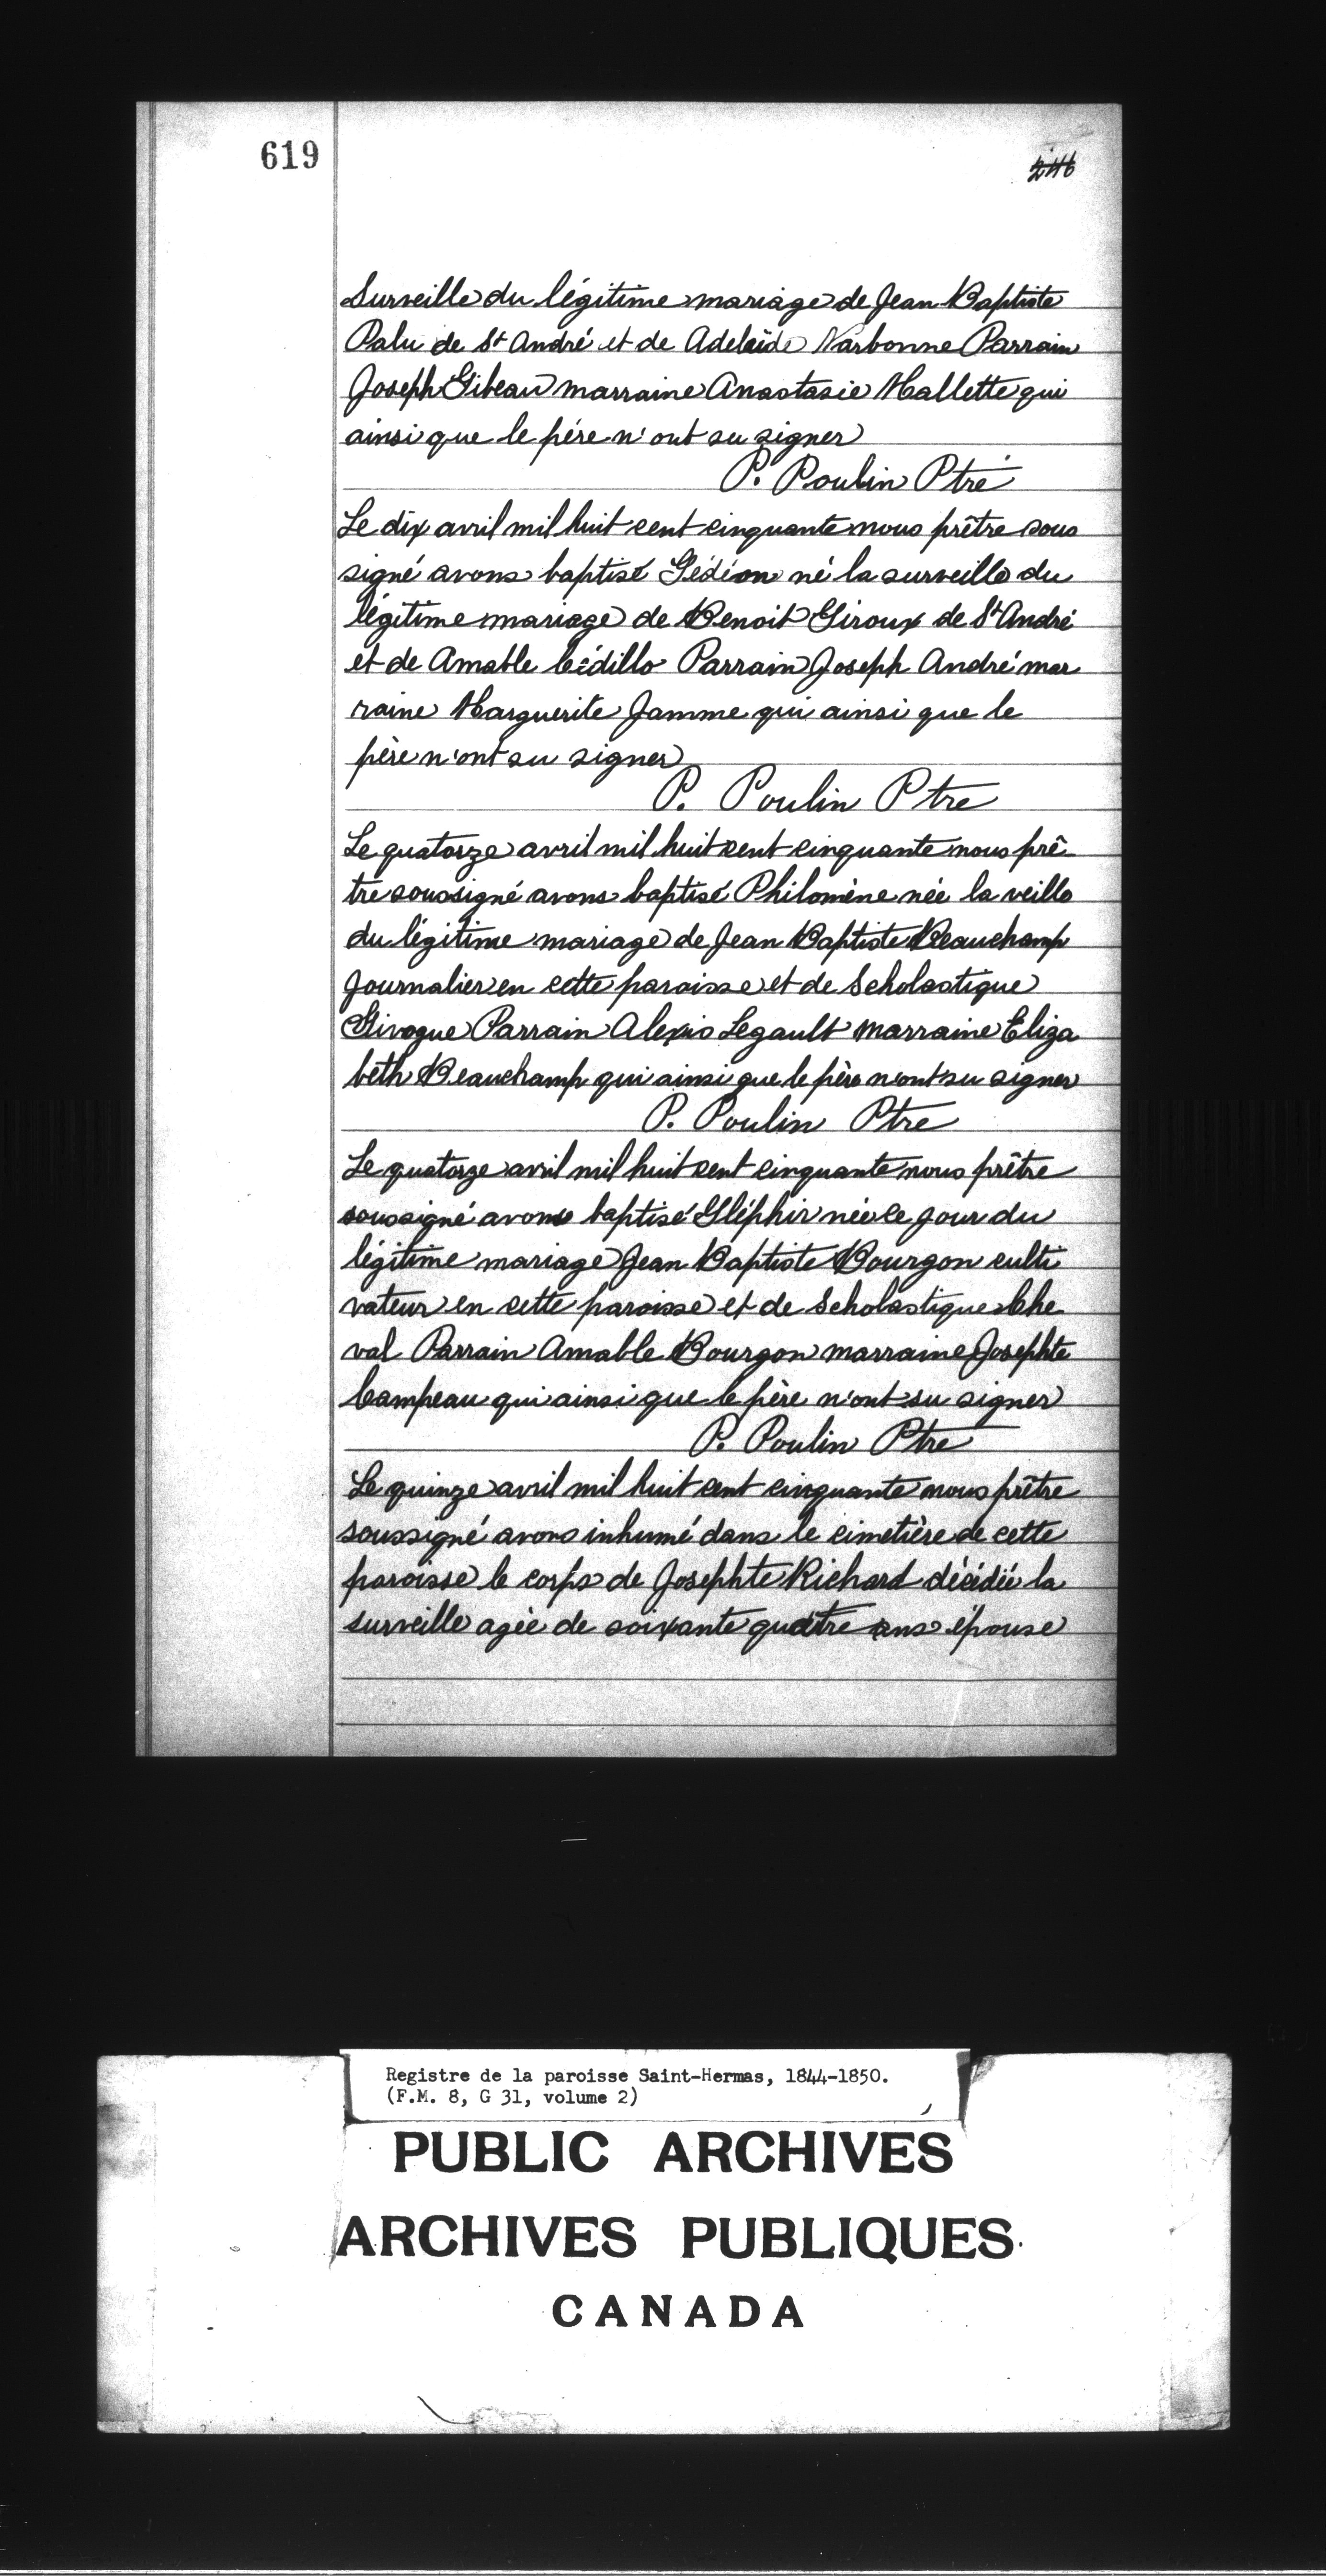 619
246
Surveille du légitime mariage de Jean Baptiste
Palu de St André et de Adelaide Narbonne Parrain
Joseph Gibeau marraine Anastasie Mallette qui
ainsi que le père n'ont su signer
P. Poulin Ptre
Le dix avril mil huit cent cinquante nous prêtre sous
signé avons baptisé Gédéon né la surveille du
légitime mariage de Benoit Giroux de St André
et de Amable Cédillo Parrain Joseph André mar
raine Marguerite Jamme qui ainsi que le
père n'ont su signer
P. Poulin Ptre
Le quatorze avril mil huit cent cinquante nous prê
tre soussigné avons baptisé Philomène née la veille
du légitime mariage de Jean Baptiste Beauchamp
Journalier en cette paroisse et de Scholastique
Givogue Parrain Alexis Legault marraine Eliza
beth Beauchamp qui ainsi que le père n'ont su signer
P. Poulin Ptre
Le quatorze avril mil huit cent cinquante nous prêtre
soussigné avons baptisé Gléphir née ce jour du
légitime mariage Jean Baptiste Bourgon culti
vateur en cette paroisse et de Scholastique Che
val Parrain Amable Bourgon marraine Josephte
Campeau qui ainsi que le père n'ont su signer
P. Poulin Ptre
Le quinze avril mil huit cent cinquante nous prêtre
soussigné avons inhumé dans le cimetière de cette
paroisse le corps de Josephte Richard décédée la
surveille agée de soixante quatre ans épouse
Registre de la paroisse Saint-Hermas, 1844-1850.
(F.M. 8, G 31, volume 2)
PUBLIC ARCHIVES
ARCHIVES PUBLIQUES
CANADA